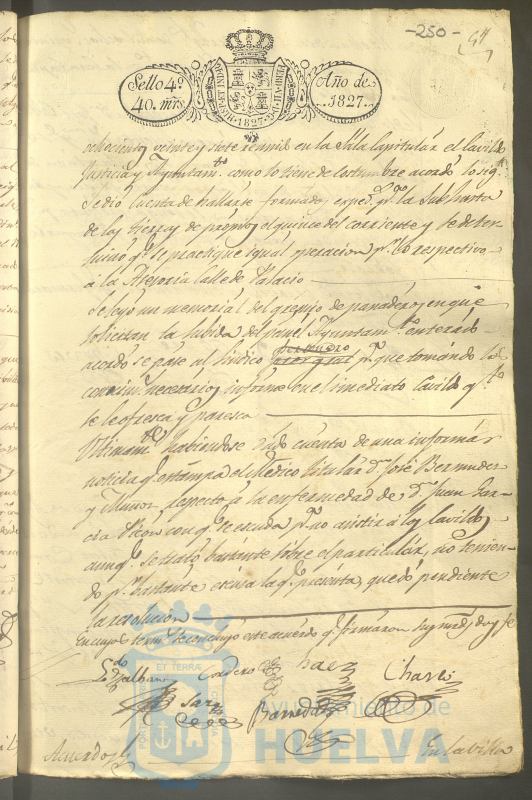 -250-
Sello 4º
40. mrs
HISP. ET IND. R
1827
Año de
1827.
ochocientos veinte y siete reunido en la Sala Capitular el Cavildo
Justicia y Ayuntamto. como lo tiene de costumbre acordó lo sigte.
Se dió cuenta de hallarse formado expedte. pa. la Subhasta
de las tierras de propios el quince del corriente y se deter
minó qe. se practique igual operacion pr. lo respectivo
á la Asesoria calle de Palacio
Se leyó un memorial del gremio de panaderos en que
solicitan la subida del pan el Ayuntamto. enterado
acordó se pase al sindico personero pa. que tomando los
conocimtos. necesarios informe en el inmediato Cavildo qto.
se le ofresca y paresca
Ultimamte. habiendose dado cuenta de una informar
noticia qe. estampa el Medico titular Dn. José Bermudez
y Muñoz respecto á la enfermedad de Dn. Juan Gar-
cia con qe. se escuda pa. no asistir á los Cavildos,
aunqe. se trató bastante sobre el particular, no tenien-
do pr. bastante escusa la qe. presenta, quedó pendiente
la resolucion
En cuyos termos. se concluyó este acuerdo qe. firmaron sus mrds. doy fe
Cordero
Saez
Charlo
Barreda
PORTUS
ET TERRÆ
Ayuntamiento de
HUELVA
Acuerdo
En la villa